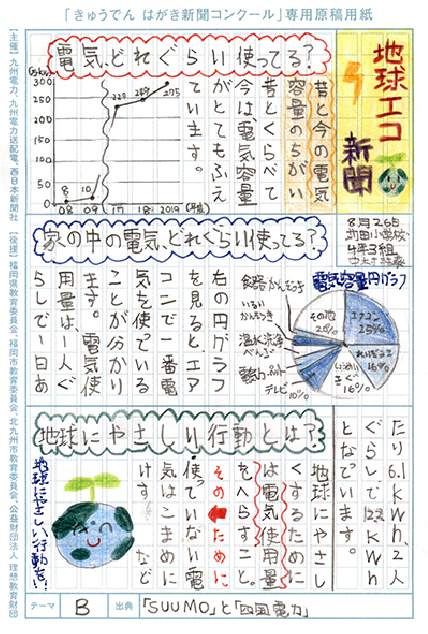 「きゅうでん はがき新聞コンクール」専用原稿用紙
【主催】九州電力、九州電力送配電、西日本新聞社 【後援】福岡県教育委員会、福岡市教育委員会、北九州市教育委員会、公益財団法人 理想教育財団
地球エコ
新聞
8月26日
4年3組
電気、どれぐらい使ってる?
昔と今の電気
容量のちがい
昔とくらべて
今は、電気容量
がとてもふえ
ています。
300
250
200
150
100
50
0
8
10
275
08
09
17
18
2019
(年度)
家の中の電気、どれぐらい使ってる?
電気容量円グラフ
エアコン
25%
16%
16%
テレビ
10%
その他
右の円グラフ
を見ると、エア
コンで一番電
気を使っている
ことが分かり
ます。電気使
用量は、一人ぐ
らしで一日あ
たり6.1kWh、2人
ぐらしで12.2kWh
となっています。
地球にやさしい行動とは?
地球にやさし
くするために
は電気使用量
をへらすこと。
そのために
使っていない電
気はこまめに
けす など
地球にやさしい行動を!
テーマ
B
出典
「SUUMO」と「四国電力」